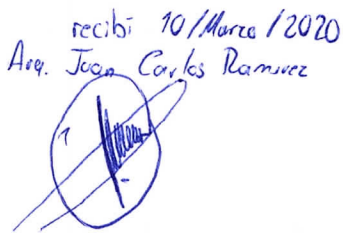 recibi 10/Marzo/2020
Arq. Juan Carlos Ramirez